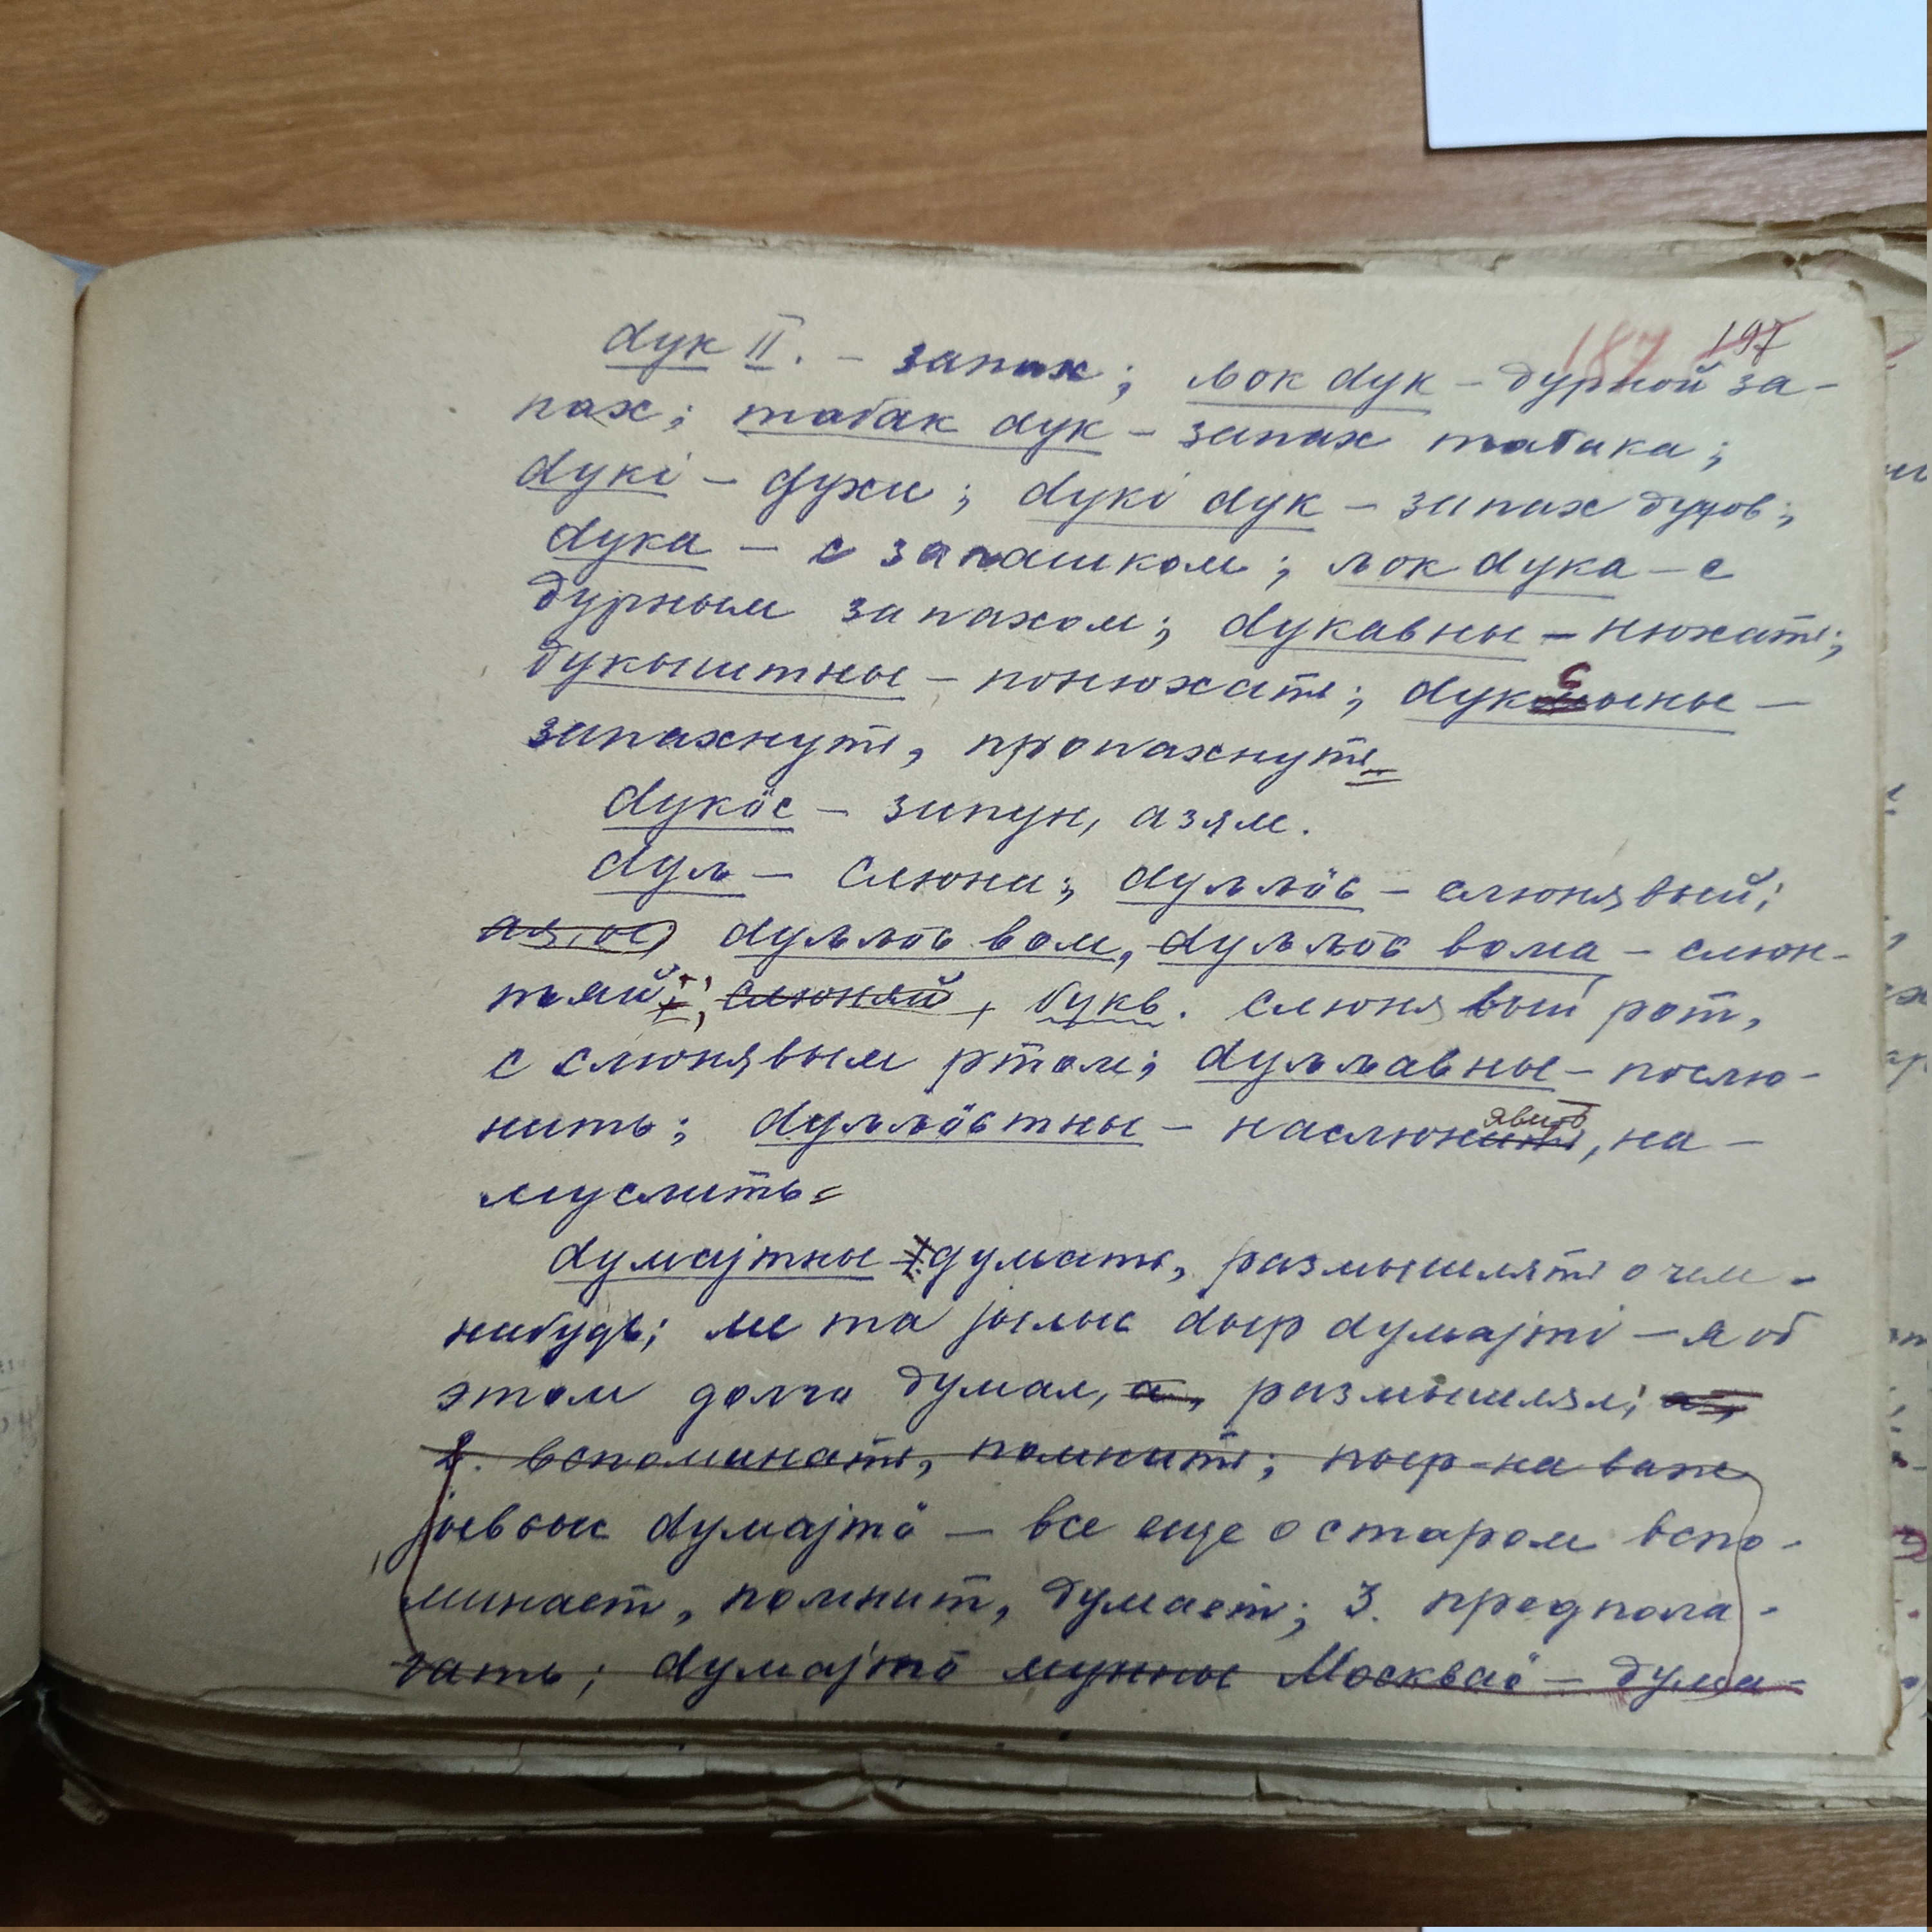 187 197
дук II. – запах; љок дук – дурной за-
пах; табак дук – запах табака;
дукі – духи; дукі дук – запах духов;
дука – с запашком; љок дука – с
дурным запахом; дукавны – нюхать;
дукыштны – понюхать; дуксыны –
запахнуть, пропахнуть
дукӧс – зипун, азям.
дуљ – слюни; дуљљӧс – слюнявый;
дуљљӧс вом, дуљљӧс вома – слюн-
тяй; слюняй, букв. слюнявый рот,
с слюнявым ртом; дуљљавны – послю-
нить; дуљљӧстны – наслюнявить, на-
муслить
думајтны – думать, размышлять о чем-
нибудь; ме та јылыс дыр думајті – я об
этом долго думал, размышлял;
2. вспоминать, помнить; пыр на важ
јывсыс думајтӧ – все еще о старом вспо-
минает, помнит, думает; 3. предпола-
гать; думајтӧ мунны Москваӧ – дума-